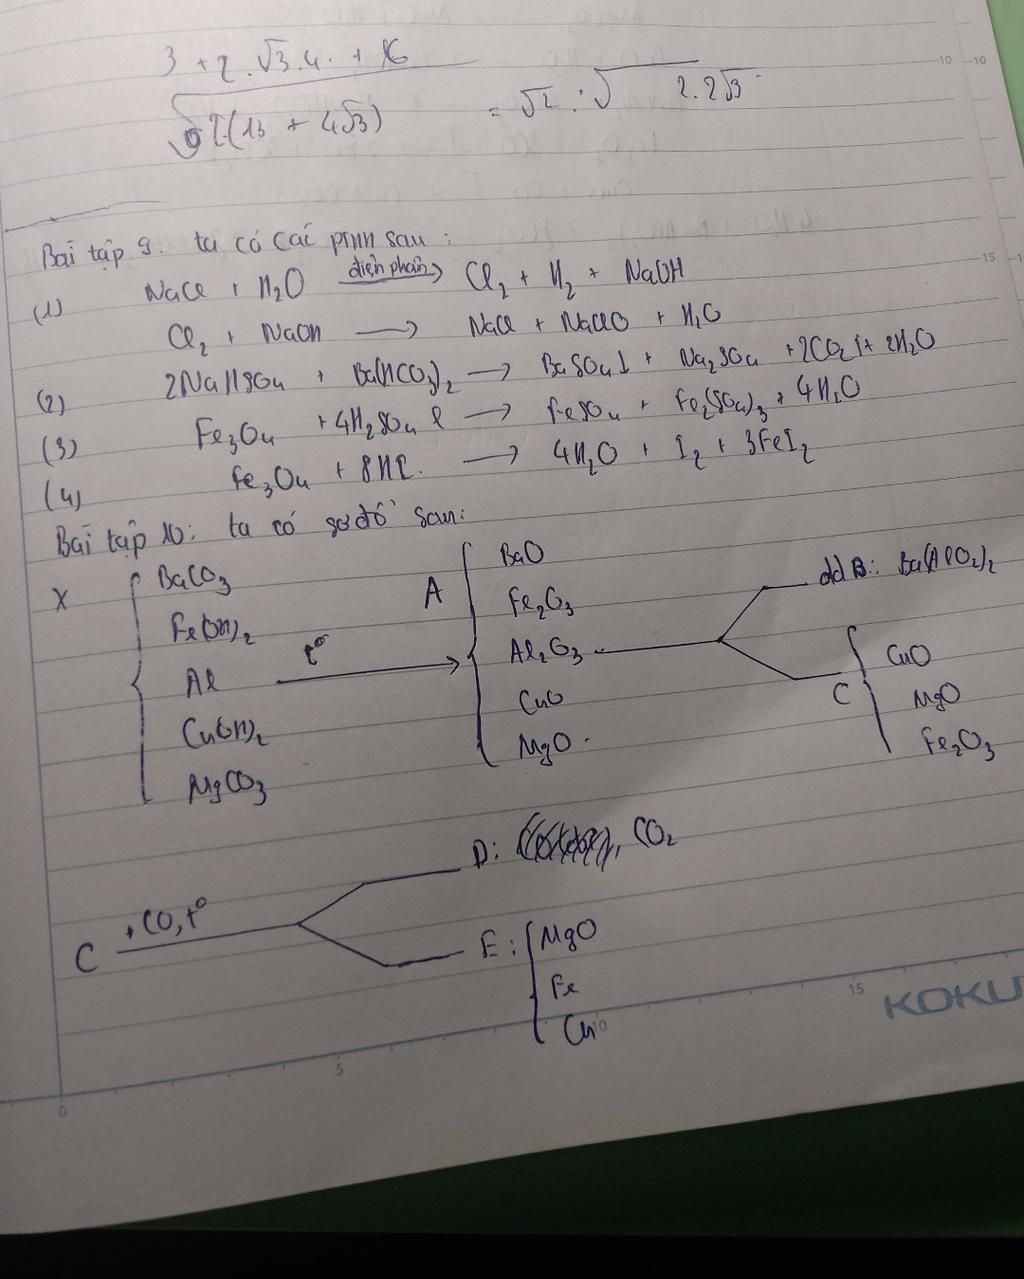 3 + 2.√3.4. + 16
√2(13 + 4√3) = √2 : √ 2.2√3
10 10
Bài tập 9: ta có các ptnn sau:
15
(1) NaCl + H₂O điện phân→ Cl₂ + H₂ + NaOH
Cl₂ + NaOH → NaCl + NaClO + H₂O
(2) 2NaHSO₄ + Ba(HCO₃)₂ → BaSO₄↓ + Na₂SO₄ + 2CO₂↑ + 2H₂O
(3) Fe₃O₄ + 4H₂SO₄ l → FeSO₄ + Fe₂(SO₄)₃ + 4H₂O
(4) Fe₃O₄ + 8HI. → 4H₂O + I₂ + 3FeI₂
Bài tập 10: ta có sơ đồ sau:
X { BaCO₃
Fe(OH)₂
Al
Cu(OH)₂
MgCO₃
t°
A { BaO
Fe₂O₃
Al₂O₃
CuO
MgO
dd B: Ba(AlO₂)₂
C { CuO
MgO
Fe₂O₃
C + CO, t°
D: CO₂
E: { MgO
Fe
Cu
0 5 10 15
KOKU